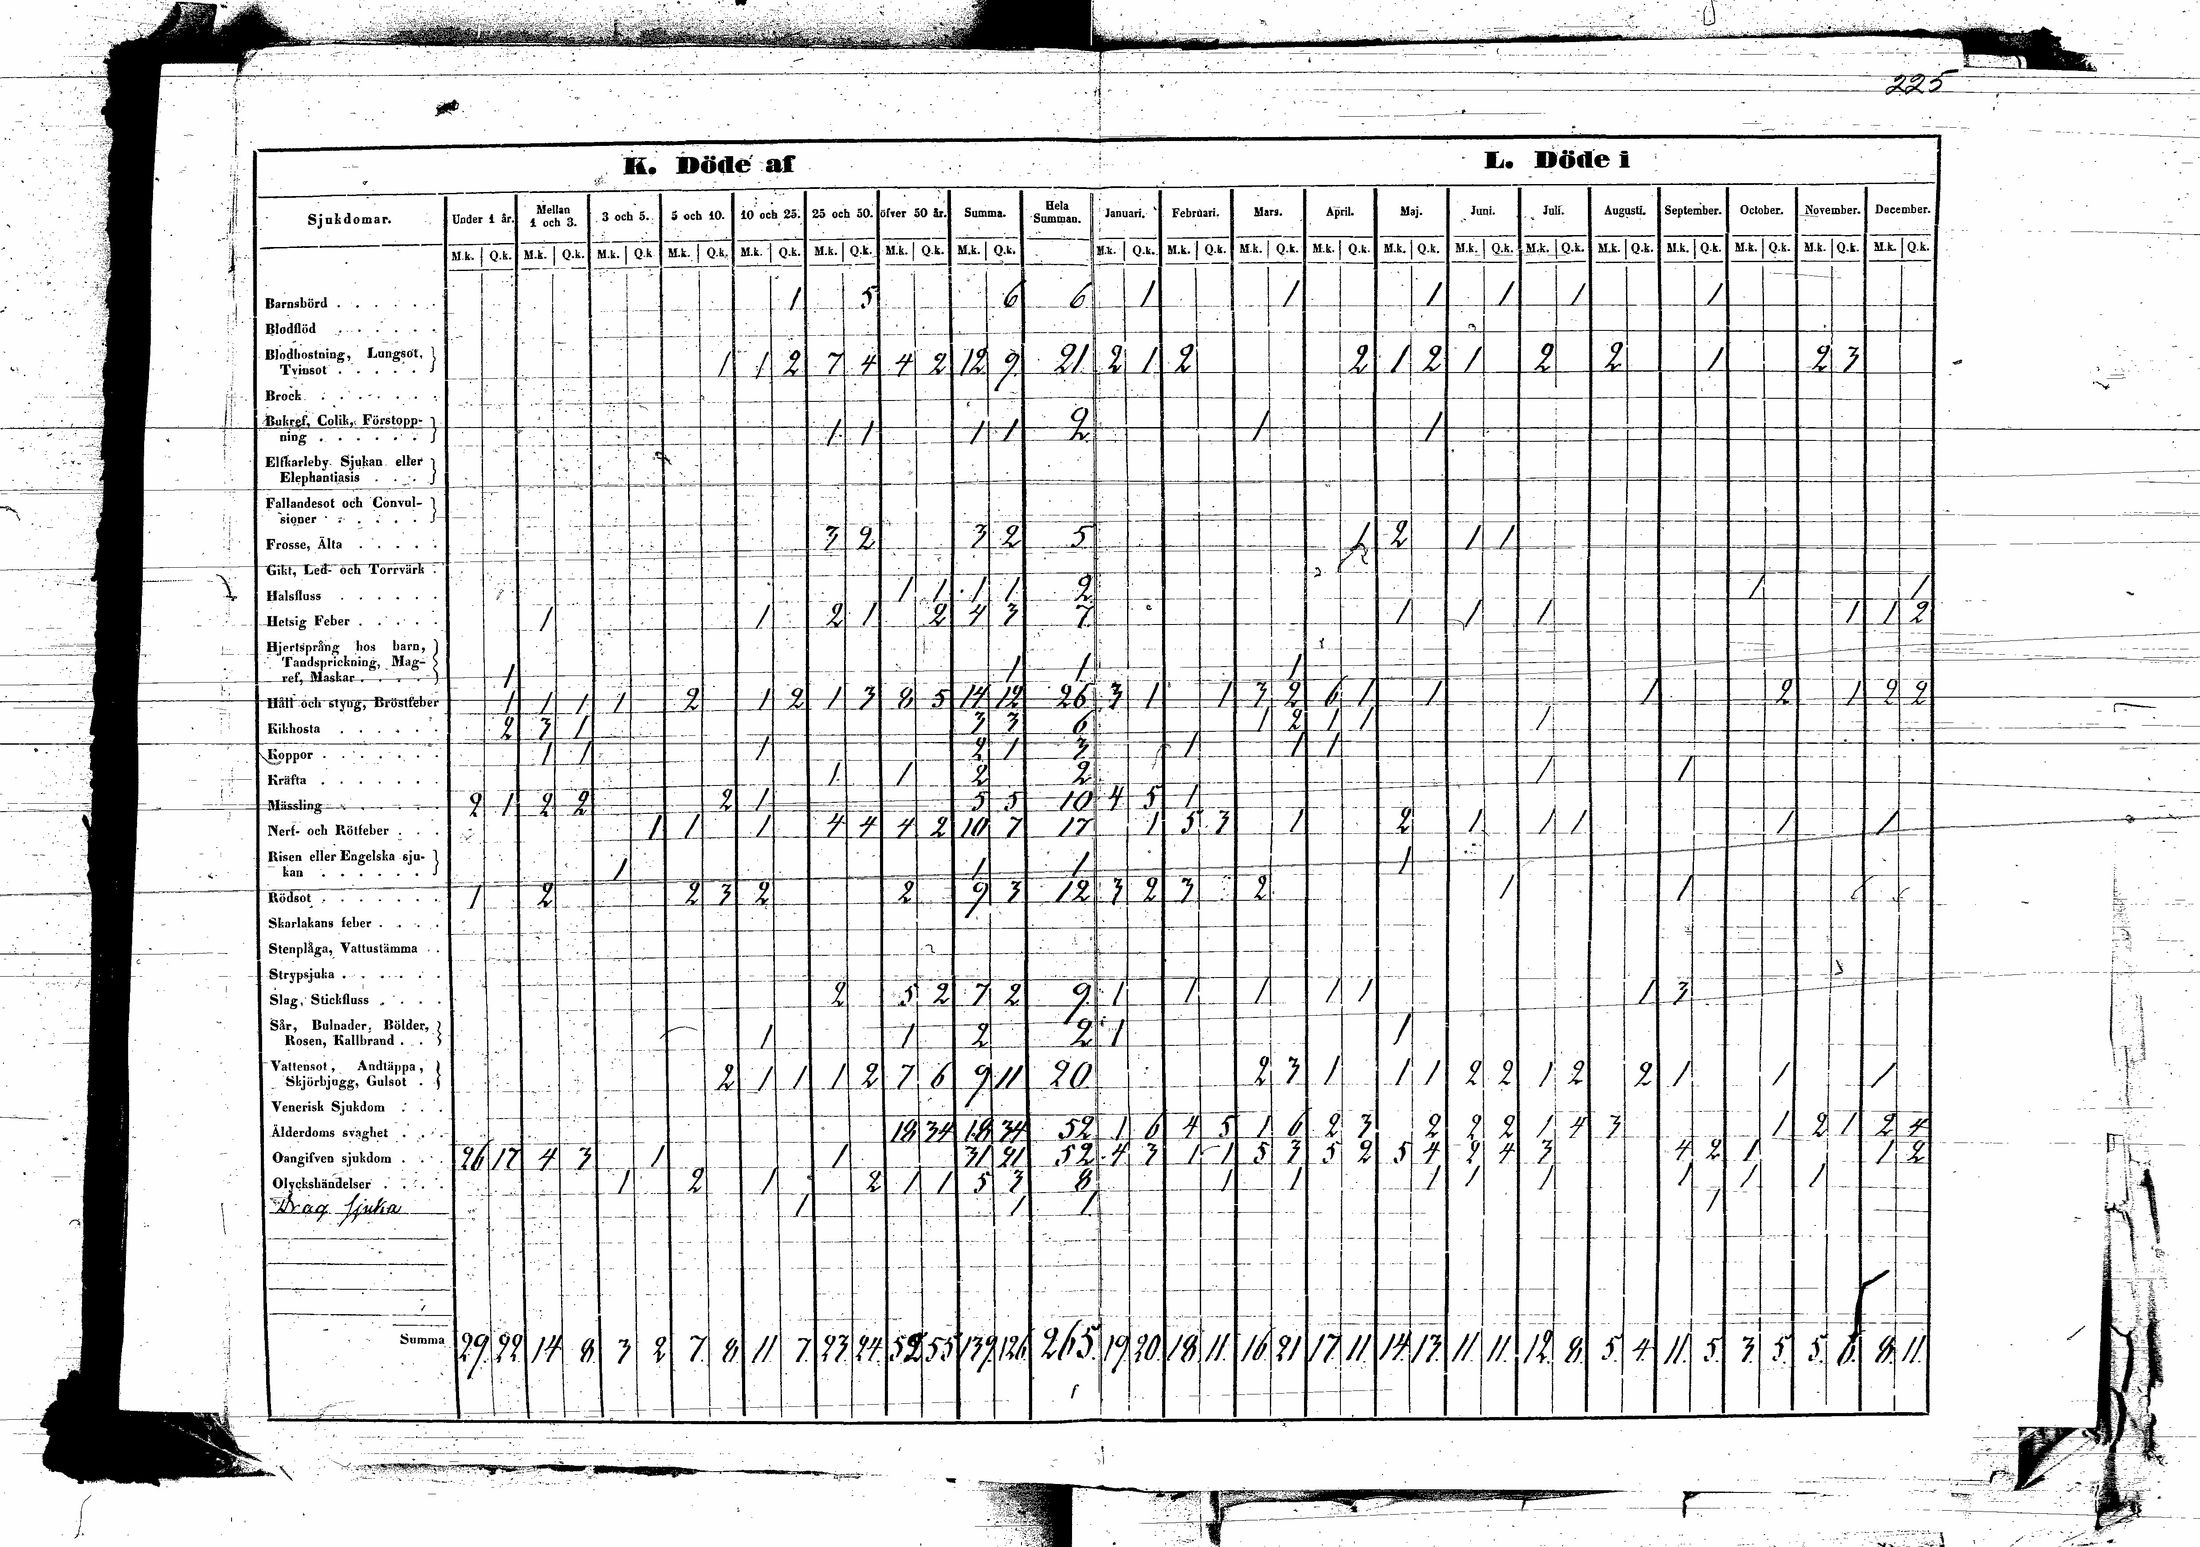 225
K. Döde af L. Döde i
Sjukdomar. Under 1 år. Mellan 1 och 3. 3 och 5. 5 och 10. 10 och 25. 25 och 50. öfver 50 år. Summa. Hela Summan. Januari. Februari. Mars. April. Maj. Juni. Juli. Augusti. September. October. November. December.
M.k. Q.k. M.k. Q.k. M.k. Q.k M.k. Q.k. M.k. Q.k. M.k. Q.k. M.k. Q.k. M.k. Q.k. M.k. Q.k. M.k. Q.k. M.k. Q.k. M.k. Q.k. M.k. Q.k. M.k. Q.k. M.k. Q.k. M.k. Q.k. M.k. Q.k. M.k. Q.k. M.k. Q.k. M.k. Q.k.
Barnsbörd . . . . . . 1 5 6 6 1 1 1 1 1 1
Blodflöd . . . . . .
Blodhostning, Lungsot,
Tvinsot . . . . . 1 1 2 7 4 4 2 12 9 21 2 1 2 2 1 2 1 2 2 1 2 3
Brock . . . . . . .
Bukref, Colik, Förstopp-
ning . . . . . . 1 1 1 1 2 1 1
Elfkarleby Sjukan eller
Elephantiasis . . .
Fallandesot och Convul-
sioner . . . . .
Frosse, Älta . . . . . 3 2 3 2 5 1 2 1 1
Gikt, Led- och Torrvärk .
Halsfluss . . . . . . 1 1 1 1 2 1 1
Hetsig Feber . . . . . 1 1 2 1 2 4 3 7 1 1 1 1 1 2
Hjertsprång hos barn,
Tandsprickning, Mag-
ref, Maskar . . . . 1 1 1 1
Håll och styng, Bröstfeber 1 1 1 1 2 1 2 1 3 8 5 14 12 26 3 1 1 3 2 6 1 1 1 2 1 2 2
Kikhosta . . . . . . 2 3 1 3 3 6 1 2 1 1 1
Koppor . . . . . . . 1 1 1 2 1 3 1 1 1
Kräfta . . . . . . . 1 1 2 2 1 1
Mässling . . . . . . 2 1 2 2 2 1 5 5 10 4 5 1
Nerf- och Rötfeber . . . 1 1 1 4 4 4 2 10 7 17 1 5 3 1 2 1 1 1 1 1
Risen eller Engelska sju-
kan . . . . . . 1 1 1 1
Rödsot . . . . . . . 1 2 2 3 2 2 9 3 12 3 2 3 2 1 1
Skarlakans feber . . . .
Stenplåga, Vattustämma . .
Strypsjuka . . . . . .
Slag, Stickfluss . . . . 2 5 2 7 2 9 1 1 1 1 1 1 3
Sår, Bulnader, Bölder,
Rosen, Kallbrand . . 1 1 2 2 1 1
Vattensot, Andtäppa,
Skjörbjugg, Gulsot . 2 1 1 1 2 7 6 9 11 20 2 3 1 1 1 2 2 1 2 2 1 1 1
Venerisk Sjukdom . . .
Ålderdoms svaghet . . . 18 34 18 34 52 1 6 4 5 1 6 2 3 2 2 2 1 4 3 1 2 1 2 4
Oangifven sjukdom . . . 26 17 4 3 1 1 31 21 52 4 3 1 1 5 3 5 2 5 4 2 4 3 4 2 1 1 2
Olyckshändelser . . . . 1 2 1 2 1 1 5 3 8 1 1 1 1 1 1 1 1
Drag sjuka 1 1 1 1
Summa 29. 22 14 8 3 2 7. 8 11 7. 23 24. 52 55 139. 126 265. 19 20. 18 11. 16 21 17. 11. 14. 13. 11. 11. 12. 8. 5. 4. 11. 5. 3. 5. 5. 8. 11.